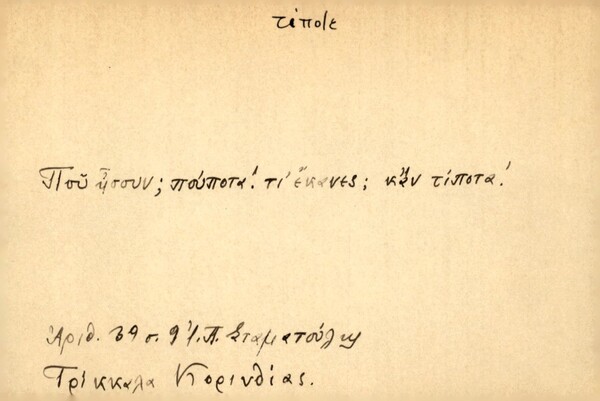 τίποτε
Ποῦ ἤσουν; πούποτα! τί ἔκανες; κἄν τίποτα!
Ἀριθ. 39 σ. 9 Π. Σταματούλης
Τρίκκαλα Κορινθίας.